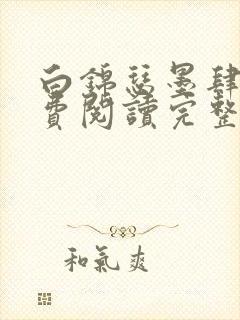 白錦瑟墨肆
費閱讀完整
和氣爽